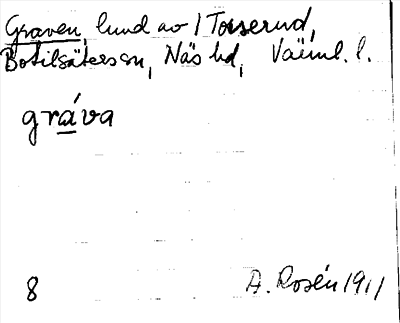 Graven, lund av 1 Torserud,
Botilsäters sn, Näs hd, Värml. l.
gráva
8 A. Rosén 1911